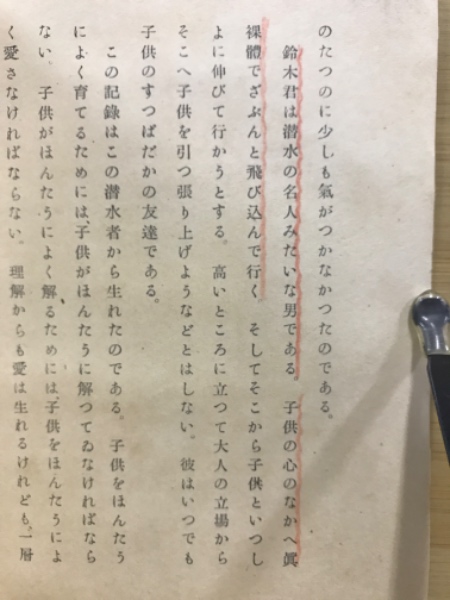 のたつのに少しも氣がつかなかつたのである。
鈴木君は潜水の名人みたいな男である。子供の心のなかへ眞
裸體でざぶんと飛び込んで行く。そしてそこから子供といつし
よに伸びて行かうとする。高いところに立つて大人の立場から
そこへ子供を引つ張り上げようなどとはしない。彼はいつでも
子供のすつぱだかの友達である。
この記錄はこの潜水者から生れたのである。子供をほんたう
によく育てるためには、子供がほんたうに解つてゐなければなら
ない、子供がほんたうによく解るためには、子供をほんたうによ
く愛さなければならない。理解からも愛は生れるけれども、一層